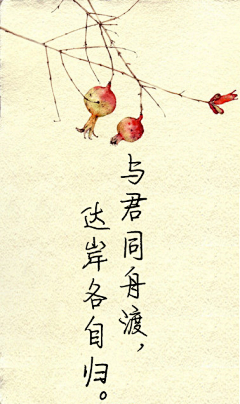 与君同舟渡，
达岸各自归。